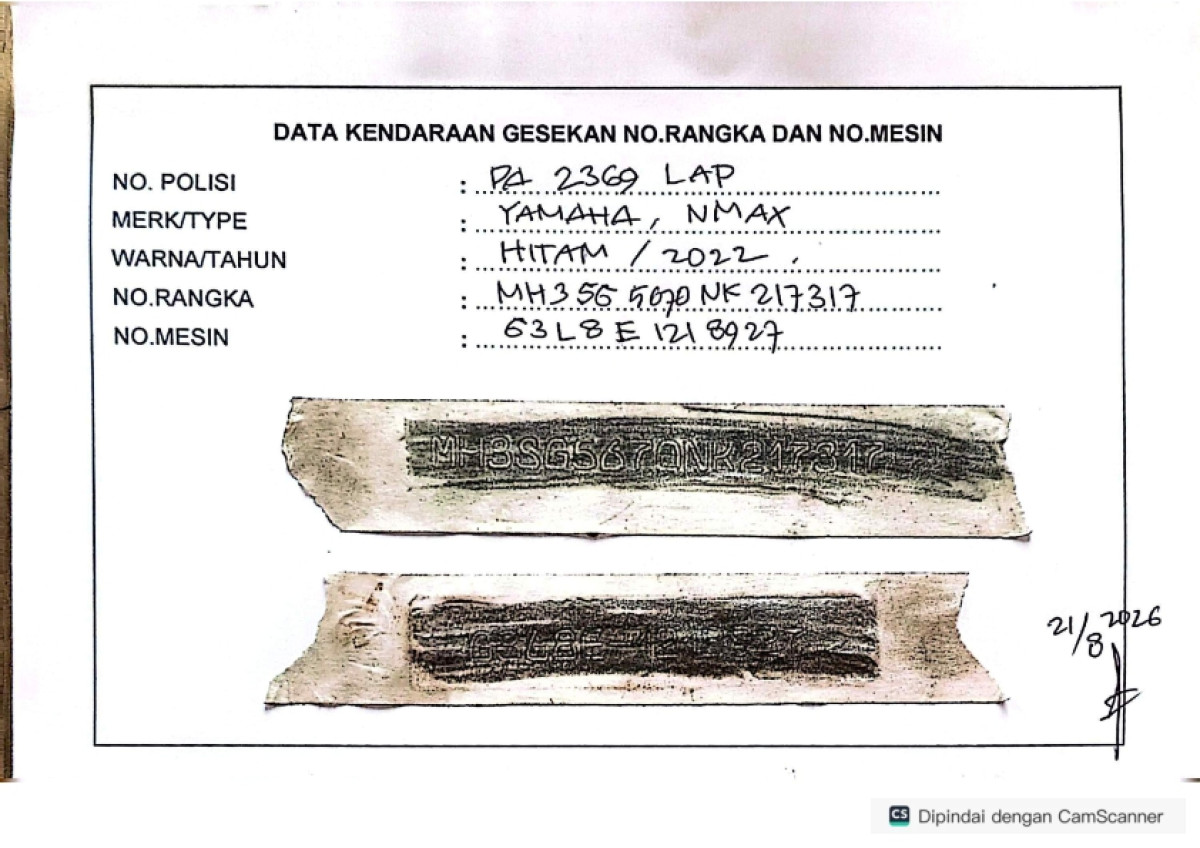 DATA KENDARAAN GESEKAN NO.RANGKA DAN NO.MESIN
NO. POLISI : PA 2369 LAP
MERK/TYPE : YAMAHA, NMAX
WARNA/TAHUN : HITAM / 2022
NO.RANGKA : MH3SG5670NK217317
NO.MESIN : G3L8E1218927
MH3SG5670NK217317
21/8 2026
CS Dipindai dengan CamScanner